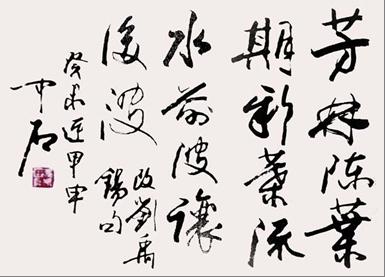 芳林陳葉
期新葉流
水前波讓
後波
改劉禹
錫句
癸未迎甲申
中石